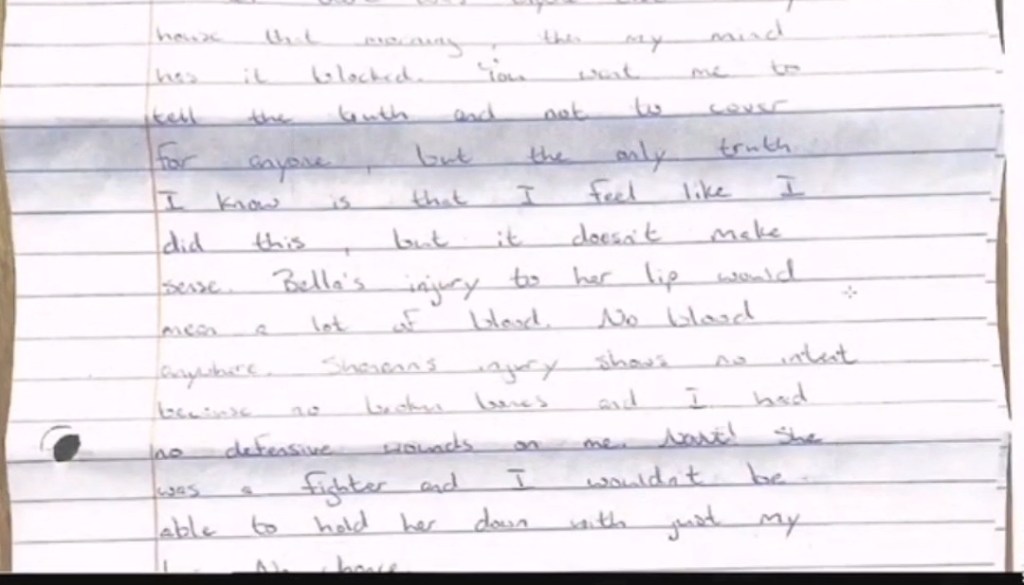 house that morning, then my mind
has it blocked. You want me to
tell the truth and not to cover
for anyone, but the only truth
I know is that I feel like I
did this, but it doesn't make
sense. Bella's injury to her lip would
mean a lot of blood. No blood
anywhere. Shanann's injury shows no intent
because no broken bones and I had
no defensive wounds on me. None! She
was a fighter and I wouldn't be
able to hold her down with just my
No chance.